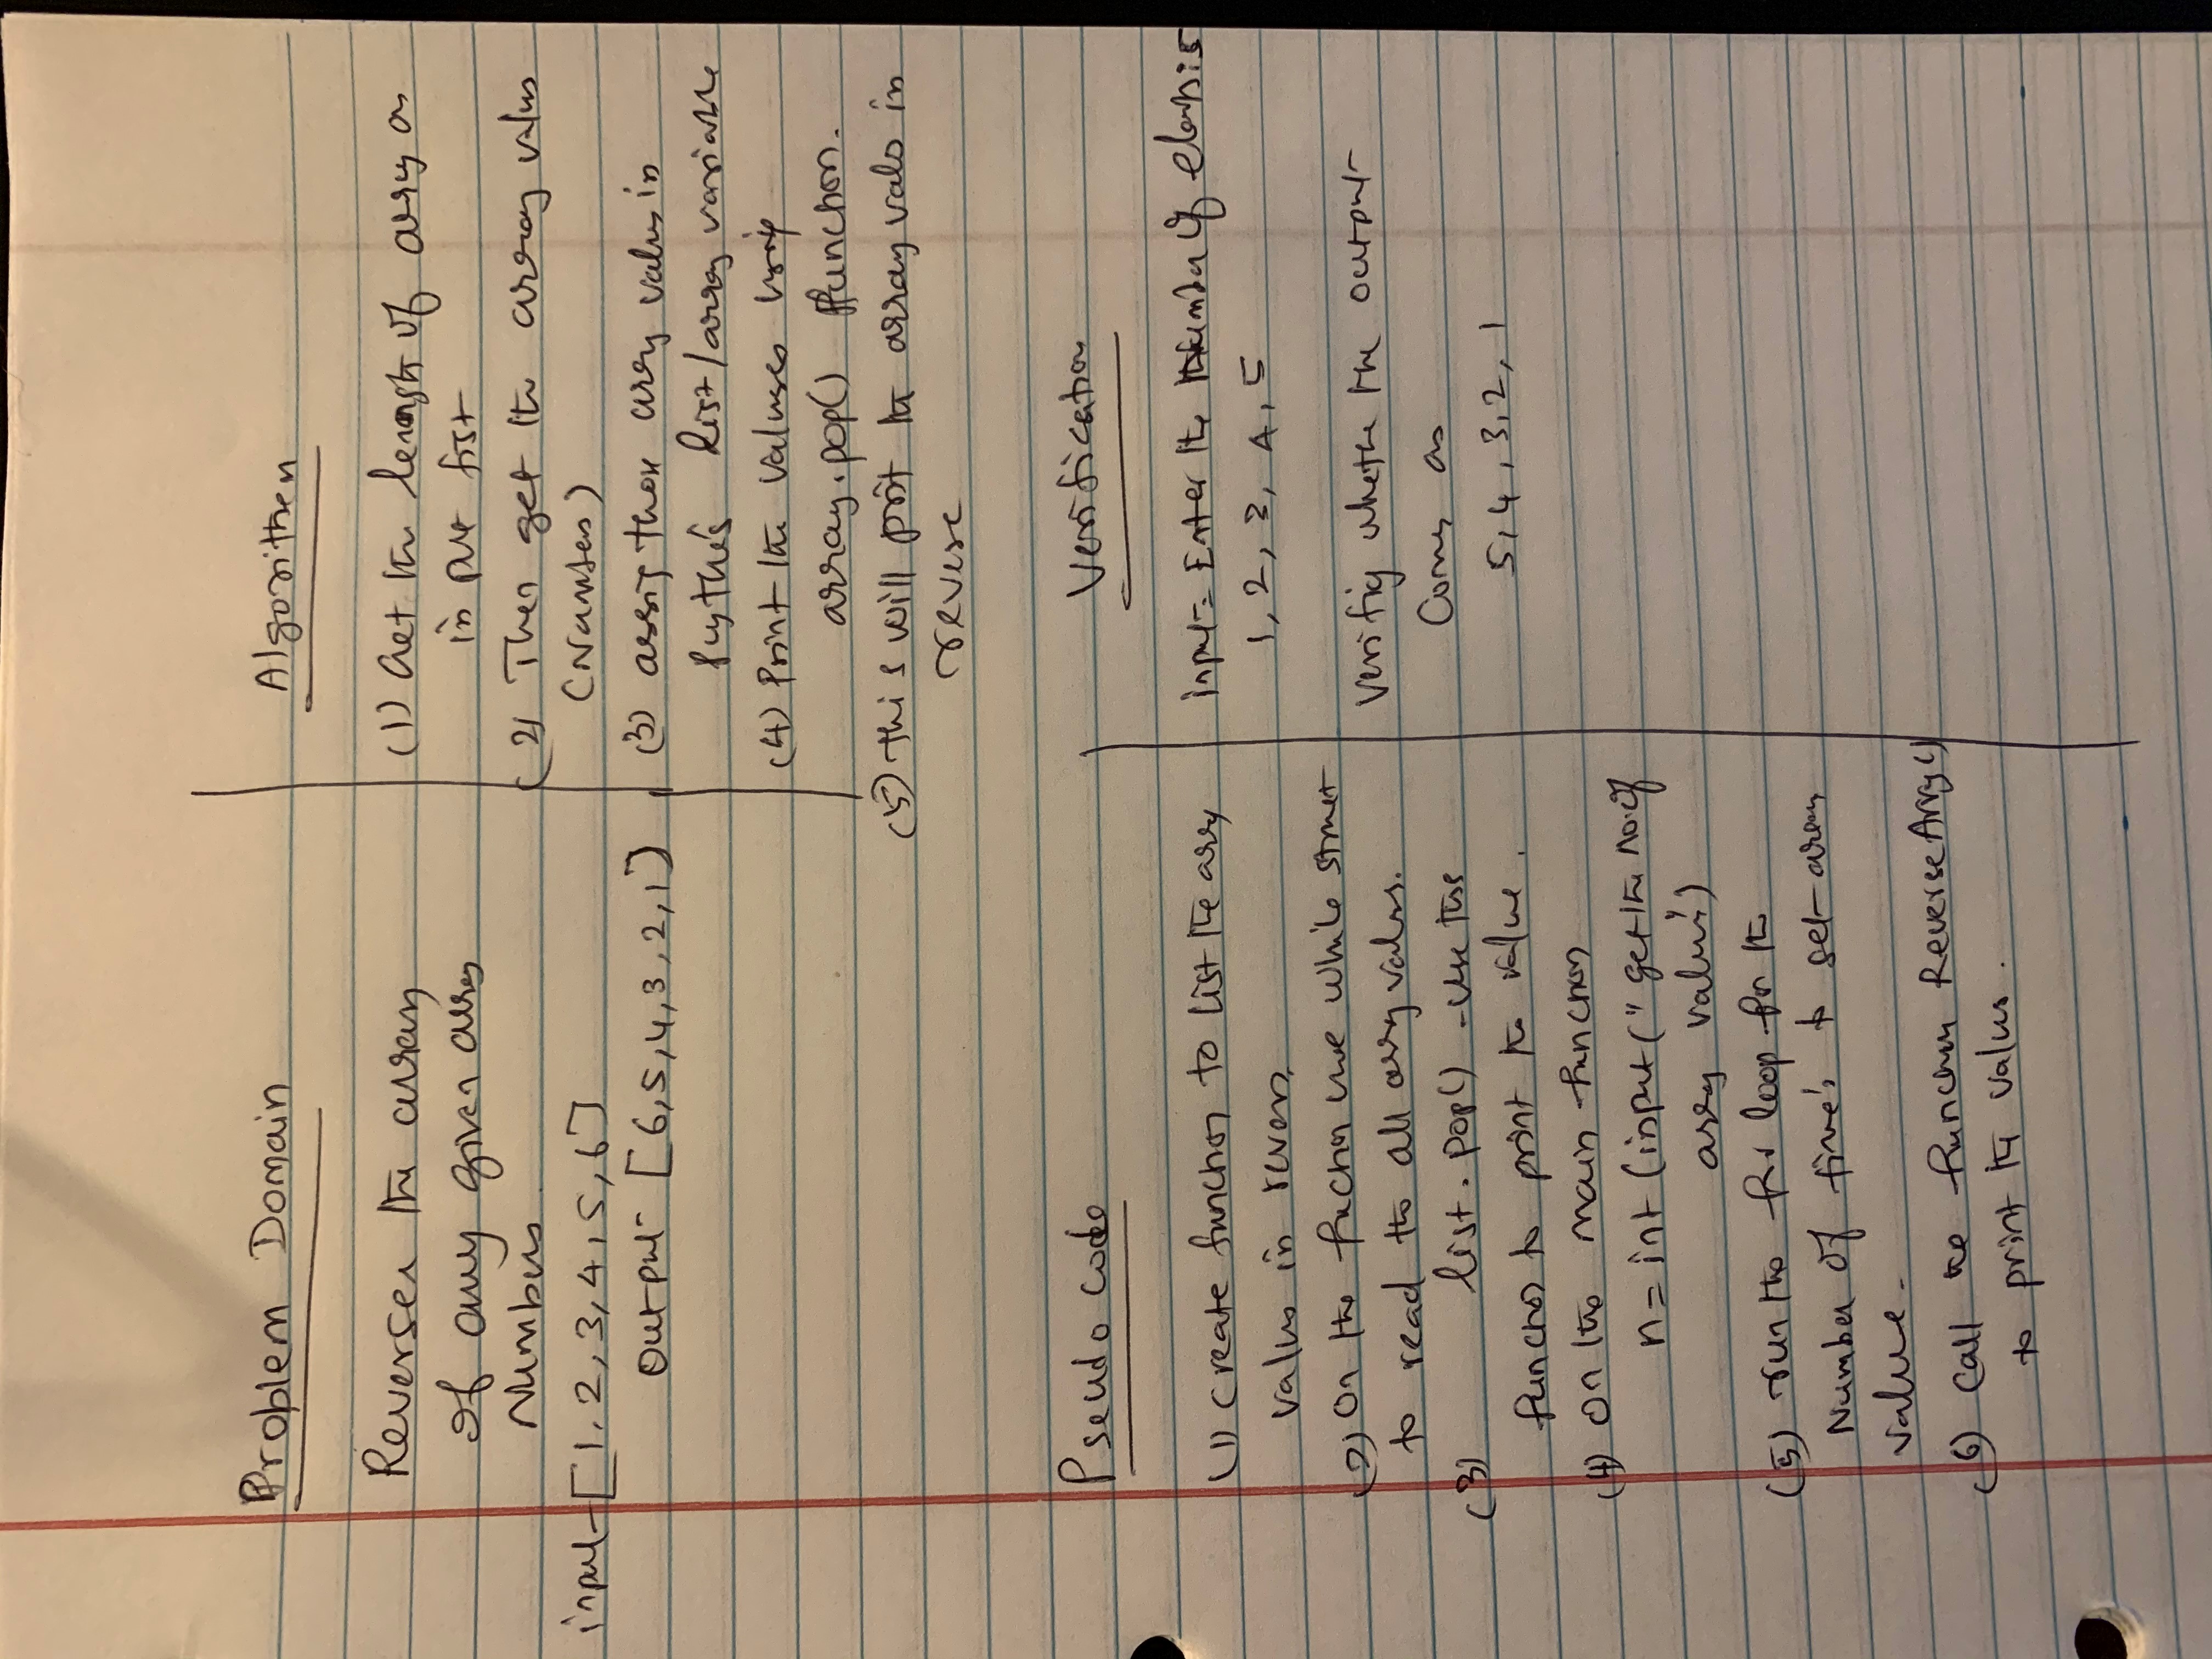 Problem Domain
Reverser the array
of any given array
Numbers.
input - [1, 2, 3, 4, 5, 6]
output - [6, 5, 4, 3, 2, 1]
Algorithem
(1) Get the length of array as
in put fist
(2) Then get the array values
(Numbers)
(3) assig those array values in
list/array variable
(4) Print the values using
array.pop() function.
(5) this will prit the array vals in
reverse
Pseudo code
(1) Create function to list the array
values in revers
(2) On the fuction use while
to read the all array values.
(3) list.pop() - use this
function to print the value.
(4) On the main function
n = int (input (" get the no. of
array values")
(5) run the for loop for the
Number of time's to get array
value -
(6) Call the function ReverseArry()
to print the values.
Verification
input = Enter the Number of is 5
1, 2, 3, 4, 5
Verifiy whethe the output
Comes as
5, 4, 3, 2, 1